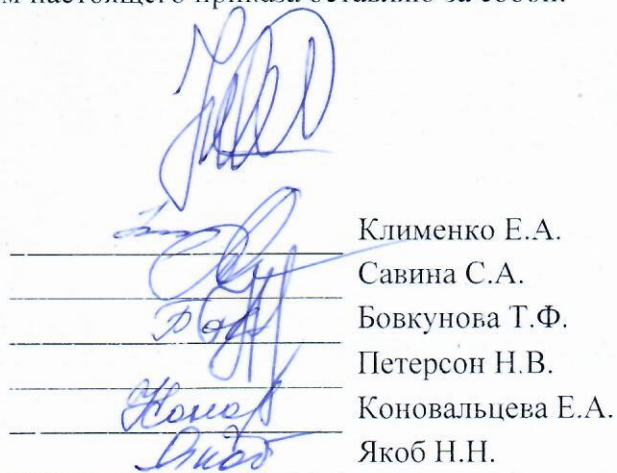 настоящего приказа оставляю за собой.
Клименко Е.А.
Савина С.А.
Бовкунова Т.Ф.
Петерсон Н.В.
Коновальцева Е.А.
Якоб Н.Н.